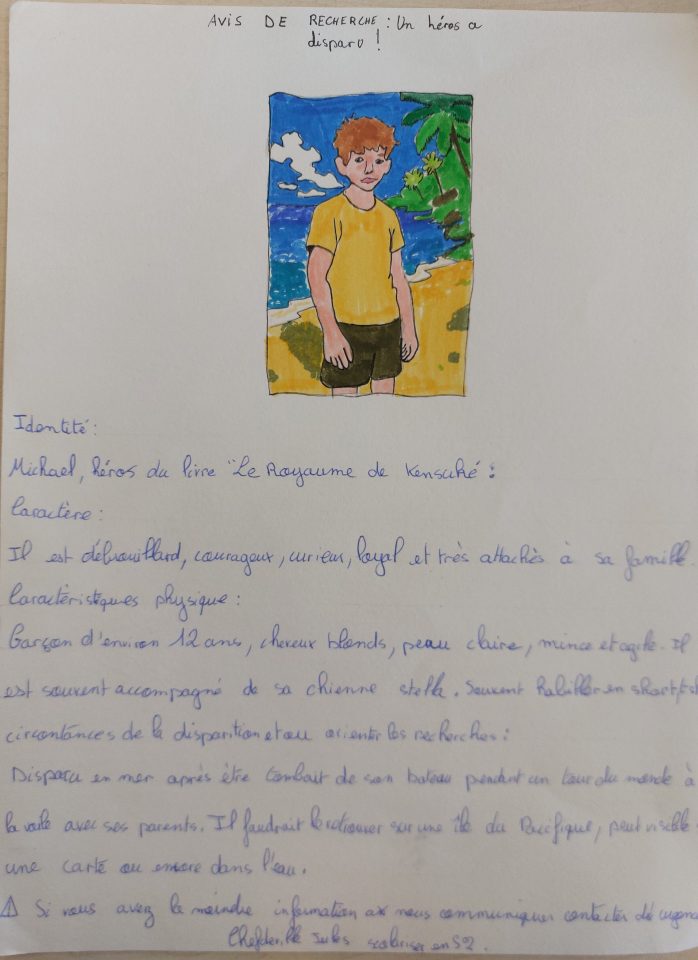 AVIS DE RECHERCHE : Un héros a
disparu !
Identité :
Michael, héros du livre "Le Royaume de Kensuké :
Caractère :
Il est débrouillard, courageux, curieux, loyal et très attachés à sa famille.
Caractéristiques physique :
Garçon d'environ 12 ans, cheveux blonds, peau claire, mince et agile. Il
est souvent accompagné de sa chienne stella. Souvent habiller en short,
circontances de la disparition et ou orienter les recherches :
Disparu en mer après être tombait de son bateau pendant un tour du monde à
la voile avec ses parents. Il faudrait le retrouver sur une île du Pacifique, peut visible
une carte ou encore dans l'eau.
⚠ Si vous avez la moindre information à nous communiquer contacter d'
Jules scolariser en